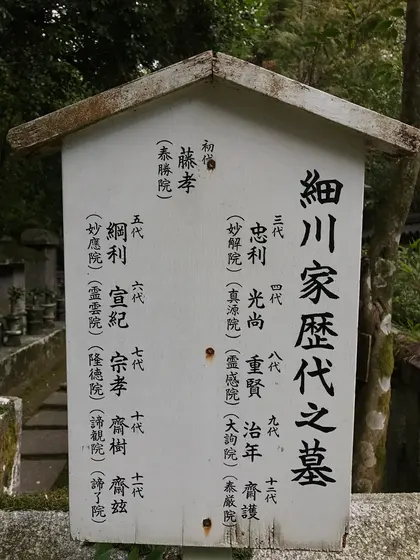 細川家歴代之墓
初代 藤孝 (泰勝院)
三代 忠利 (妙解院)
四代 光尚 (真源院)
八代 重賢 (霊感院)
九代 治年 (大詢院)
十二代 齋護 (泰厳院)
五代 綱利 (妙應院)
六代 宣紀 (霊雲院)
七代 宗孝 (隆徳院)
十代 齋樹 (諦観院)
十一代 齋玆 (諦了院)